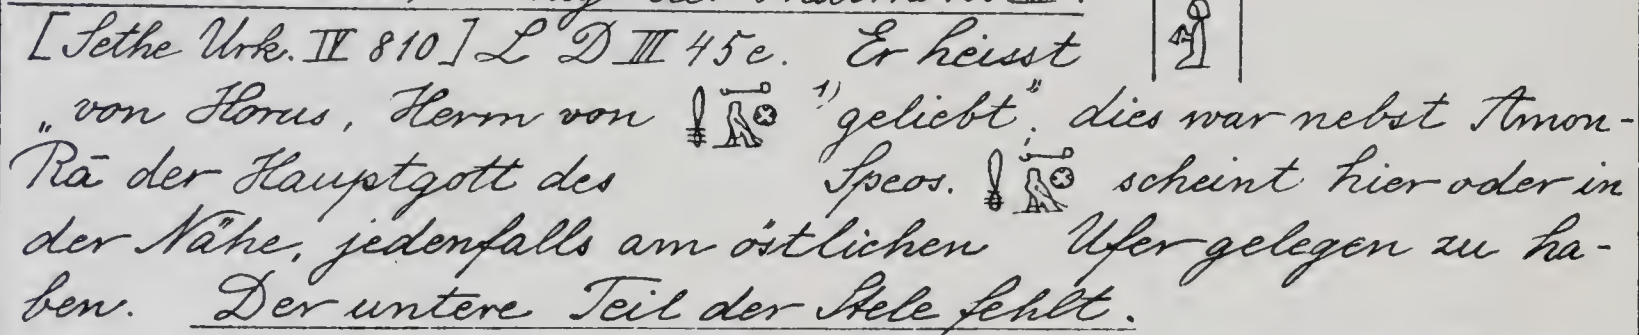 [Sethe Urk. IV 810] L D III 45e. Er heisst
„von Horus, Herrn von ¹⁾ geliebt“; dies war nebst Amon-
Rā der Hauptgott des Speos. scheint hier oder in
der Nähe, jedenfalls am östlichen Ufer gelegen zu ha-
ben. Der untere Teil der Stele fehlt.